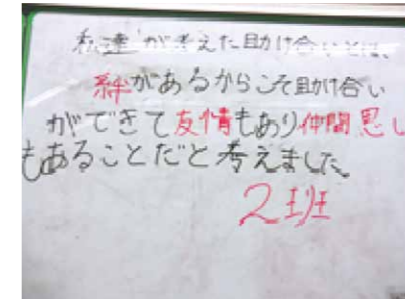 私達が考えた助け合いとは、
絆があるからこそ助け合い
ができて友情もあり仲間思い
もあることだと考えました。
2班